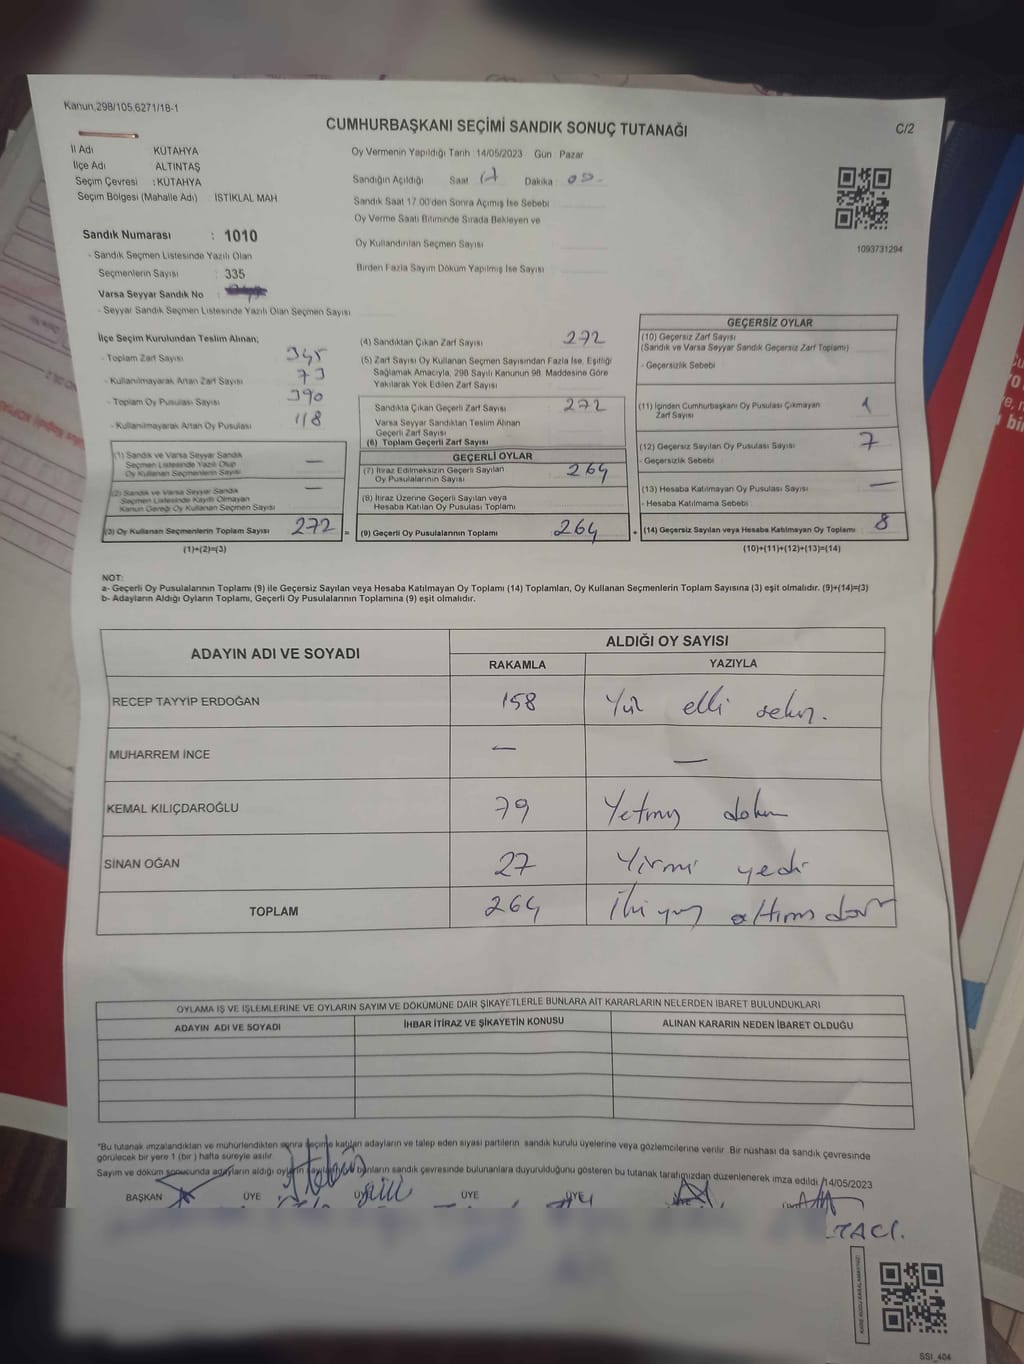 Kanun,298/105,6271/18-1
CUMHURBAŞKANI SEÇİMİ SANDIK SONUÇ TUTANAĞI
C/2
İl Adı KÜTAHYA
İlçe Adı ALTINTAŞ
Seçim Çevresi : KÜTAHYA
Seçim Bölgesi (Mahalle Adı) İSTİKLAL MAH
Sandık Numarası : 1010
- Sandık Seçmen Listesinde Yazılı Olan
Seçmenlerin Sayısı : 335
Varsa Seyyar Sandık No :
- Seyyar Sandık Seçmen Listesinde Yazılı Olan Seçmen Sayısı
Oy Vermenin Yapıldığı Tarih 14/05/2023 Gün Pazar
Sandığın Açıldığı Saat 17 Dakika 00
Sandık Saat 17.00'den Sonra Açımış İse Sebebi
Oy Verme Saati Bitiminde Sırada Bekleyen ve
Oy Kullandırılan Seçmen Sayısı
Birden Fazla Sayım Döküm Yapılmış İse Sayısı
1093731294
İlçe Seçim Kurulundan Teslim Alınan;
- Toplam Zarf Sayısı 345
- Kullanılmayarak Artan Zarf Sayısı 73
- Toplam Oy Pusulası Sayısı 390
- Kullanılmayarak Artan Oy Pusulası 118
(1) Sandık ve Varsa Seyyar Sandık
Seçmen Listesinde Yazılı Olup
Oy Kullanan Seçmenlerin Sayısı —
(2) Sandık ve Varsa Seyyar Sandık
Seçmen Listesinde Kayıtlı Olmayan
Kanun Gereği Oy Kullanan Seçmen Sayısı —
(3) Oy Kullanan Seçmenlerin Toplam Sayısı 272 =
(1)+(2)=(3)
(4) Sandıktan Çıkan Zarf Sayısı 272
(5) Zarf Sayısı Oy Kullanan Seçmen Sayısından Fazla İse, Eşitliği
Sağlamak Amacıyla, 298 Sayılı Kanunun 98. Maddesine Göre
Yakılarak Yok Edilen Zarf Sayısı
Sandıkta Çıkan Geçerli Zarf Sayısı 272
Varsa Seyyar Sandıktan Teslim Alınan
Geçerli Zarf Sayısı
(6) Toplam Geçerli Zarf Sayısı
GEÇERLİ OYLAR
(7) İtiraz Edilmeksizin Geçerli Sayılan
Oy Pusulalarının Sayısı 264
(8) İtiraz Üzerine Geçerli Sayılan veya
Hesaba Katılan Oy Pusulası Toplamı
(9) Geçerli Oy Pusulalarının Toplamı 264 +
GEÇERSİZ OYLAR
(10) Geçersiz Zarf Sayısı
(Sandık ve Varsa Seyyar Sandık Geçersiz Zarf Toplamı)
- Geçersizlik Sebebi
(11) İçinden Cumhurbaşkanı Oy Pusulası Çıkmayan
Zarf Sayısı 1
(12) Geçersiz Sayılan Oy Pusulası Sayısı 7
- Geçersizlik Sebebi
(13) Hesaba Katılmayan Oy Pusulası Sayısı —
- Hesaba Katılmama Sebebi
(14) Geçersiz Sayılan veya Hesaba Katılmayan Oy Toplamı 8
(10)+(11)+(12)+(13)=(14)
NOT:
a- Geçerli Oy Pusulalarının Toplamı (9) ile Geçersiz Sayılan veya Hesaba Katılmayan Oy Toplamı (14) Toplamları, Oy Kullanan Seçmenlerin Toplam Sayısına (3) eşit olmalıdır. (9)+(14)=(3)
b- Adayların Aldığı Oyların Toplamı, Geçerli Oy Pusulalarının Toplamına (9) eşit olmalıdır.
ADAYIN ADI VE SOYADI
ALDIĞI OY SAYISI
RAKAMLA YAZIYLA
RECEP TAYYİP ERDOĞAN 158 Yüz elli sekiz.
MUHARREM İNCE — —
KEMAL KILIÇDAROĞLU 79 Yetmiş dokuz
SİNAN OĞAN 27 Yirmi yedi
TOPLAM 264 İki yüz altmış dört
OYLAMA İŞ VE İŞLEMLERİNE VE OYLARIN SAYIM VE DÖKÜMÜNE DAİR ŞİKAYETLERLE BUNLARA AİT KARARLARIN NELERDEN İBARET BULUNDUKLARI
ADAYIN ADI VE SOYADI İHBAR İTİRAZ VE ŞİKAYETİN KONUSU ALINAN KARARIN NEDEN İBARET OLDUĞU
*Bu tutanak imzalandıktan ve mühürlendikten sonra seçime katılan adayların ve talep eden siyasi partilerin sandık kurulu üyelerine veya gözlemcilerine verilir. Bir nüshası da sandık çevresinde
görülecek bir yere 1 (bir) hafta süreyle asılır.
Sayım ve döküm sonucunda adayların aldığı oyların bunların sandık çevresinde bulunanlara duyurulduğunu gösteren bu tutanak tarafımızdan düzenlenerek imza edildi /14/05/2023
BAŞKAN ÜYE ÜYE ÜYE ÜYE
TACI.
SSI_404